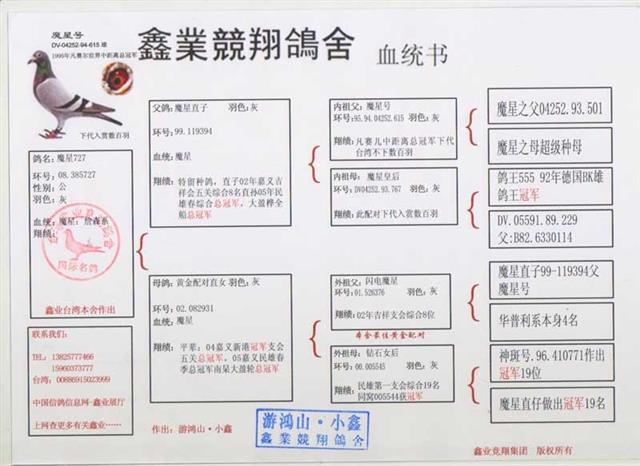 魔星号
DV-04252-94-615 雄
1995年凡赛尔世界中距离总冠军
下代入赏数百羽
鑫業競翔鴿舍
血统书
鸽名:魔星727
环号:08.385727
性别:公
羽色:灰
血统:魔星,詹森系
翔绩:
国际名鸽
鑫业台湾本舍作出
联系我们:
TEL: 13825777466
15960373777
台湾: 00886915023999
中国信鸽信息网-鑫业展厅
上网查更多有关鑫业······
父鸽:魔星直子 羽色:灰
环号:99.119394
血统:魔星
翔绩: 特留种鸽,直子02年嘉义吉
祥会五关综合8名直孙05年民
雄春综合总冠军,大盈桦全
船总冠军
母鸽:黄金配对直女 羽色:灰
环号:02.082931
血统:魔星
翔绩: 平辈:04嘉义新港冠军支会
五关总冠军,05嘉义民雄春
季总冠军南杲大盈轮总冠军
作出: 游鸿山·小鑫
内祖父:魔星号
环号:95.94.04252.615 羽色:灰
翔绩:凡赛儿中距离总冠军下代
台湾不下数百羽
内祖母:魔星皇后
环号:DV04252.93.767 羽色:灰
翔绩:此配对下代入赏数百羽
外祖父:闪电魔星
环号:01.526376 羽色:灰
翔绩:02年吉祥支会综合8位
本舍最佳黄金配对
外祖母:钻石女后
环号:00.005545 羽色:灰
翔绩:民雄第一支会综合19名
同窝005544获冠军
魔星之父04252.93.501
魔星之母超级种母
鸽王555 92年德国BK雄
鸽王冠军
DV.05591.89.229
父:B82.6330114
魔星直子99-119394父
魔星号
华普利系本身4名
神斑号.96.410771作出
冠军19位
魔星直仔做出冠军19名
游鴻山·小鑫
鑫業競翔鴿舍
鑫业竞翔集团 版权所有